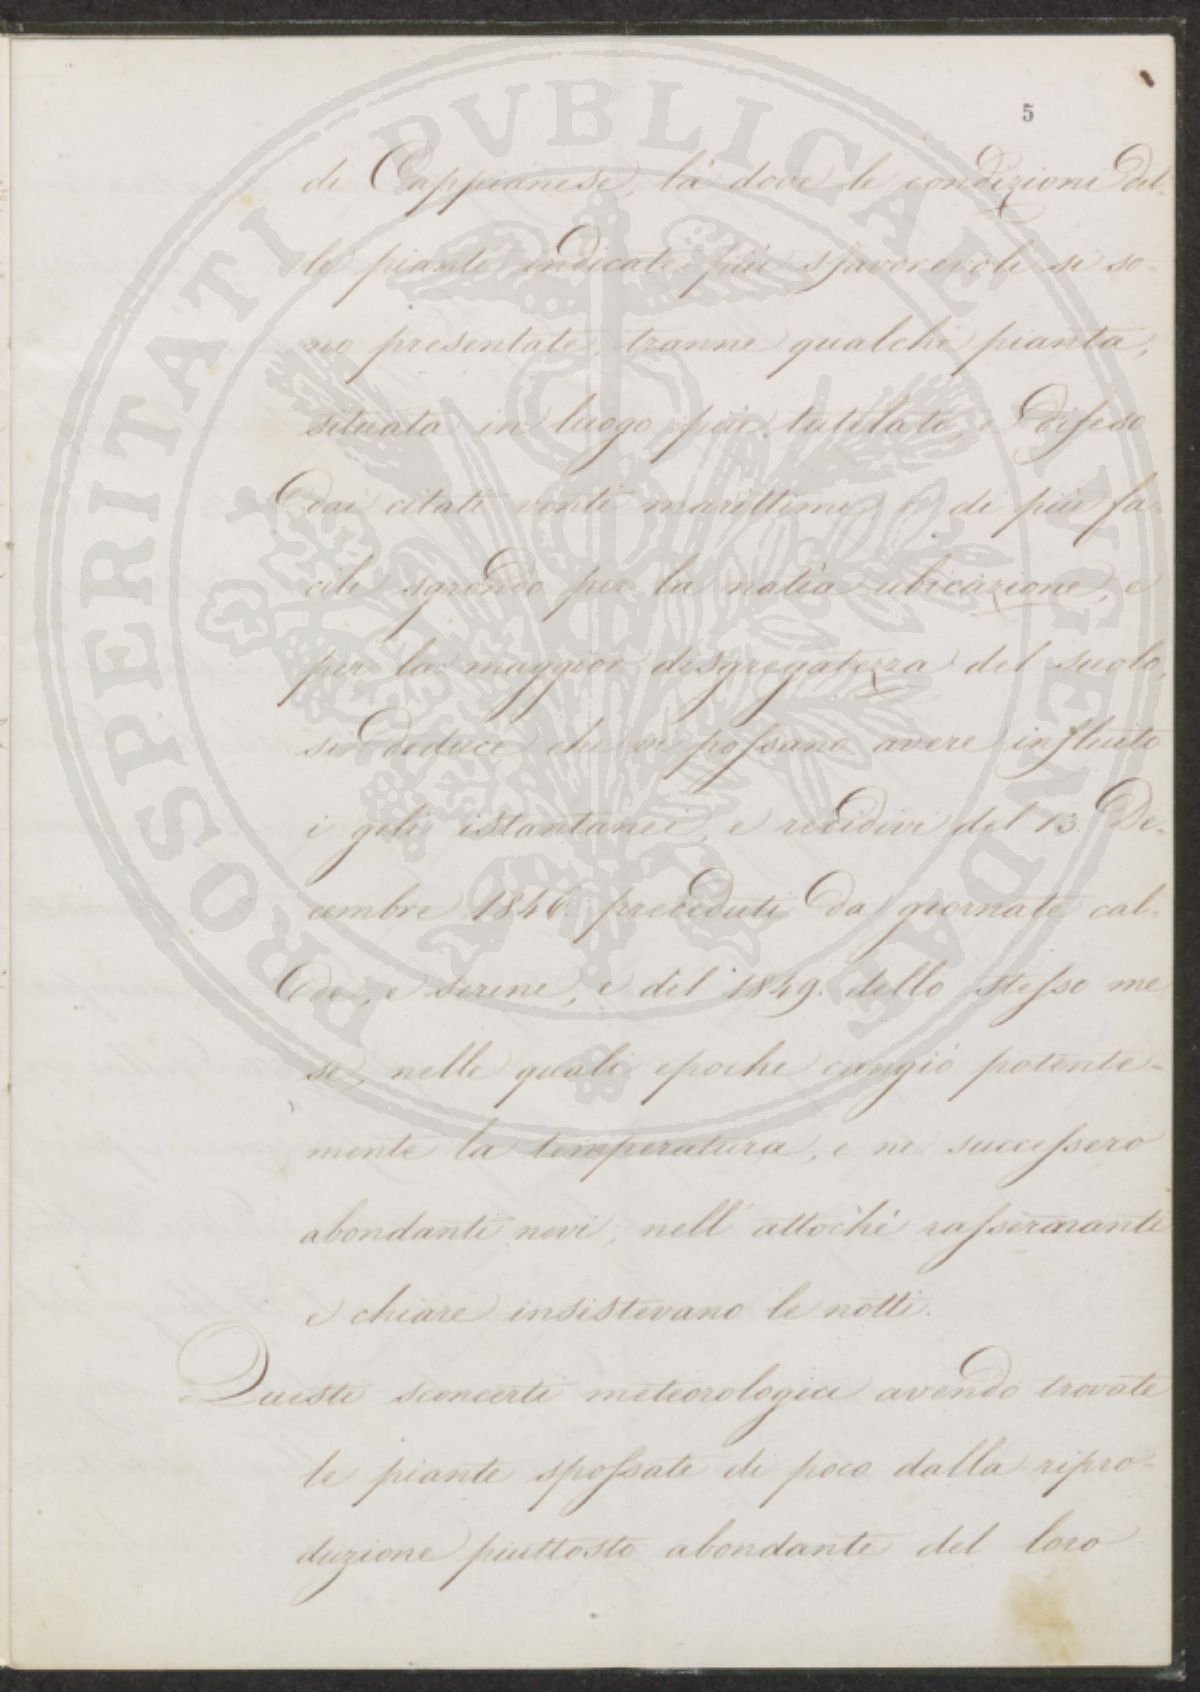 5
di Cappianese, là dove le condizioni del-
le piante indicate più sfavorevoli si so-
no presentate, tranne qualche pianta,
situata in luogo più tutelato, e difeso
dai citati venti marittimi, o di più fa-
cile sgrondo per la natia ubicazione, e
per la maggior disgregatezza del suolo,
si deduce che vi possano avere influito
i geli istantanei, e recidivi del 13. De-
cembre 1846. preceduti da giornate cal-
de, e serene, e del 1849. dello stesso me
se, nelle quali epoche cangiò potente-
mente la temperatura, e ne successero
abondanti nevi; nell'attochè rasserenanti
e chiare insistevano le notti.
Questi sconcerti meteorologici avendo trovate
le piante spossate di poco dalla ripro-
duzione piuttosto abondante del loro
PROSPERITATI PVBLICAE AVGENDAE